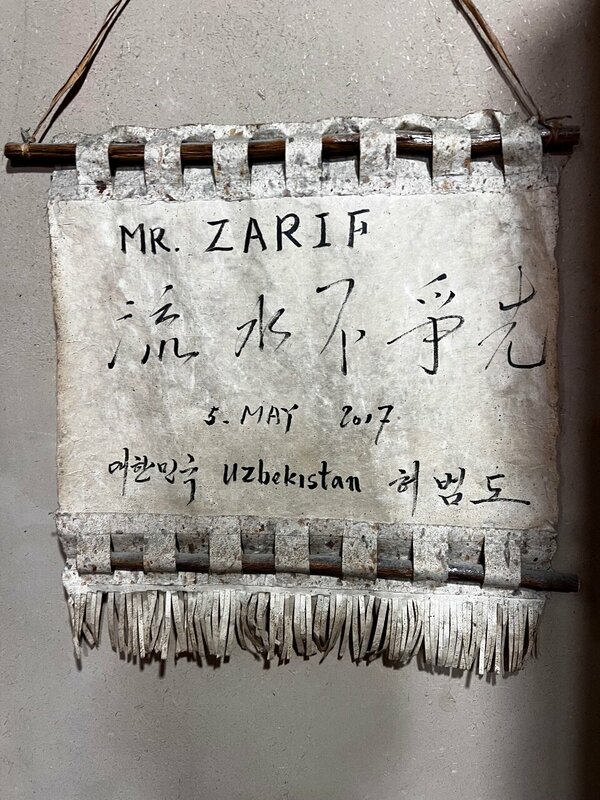 MR. ZARIF
流水不爭先
5. MAY 2017
대한민국 Uzbekistan 허범도